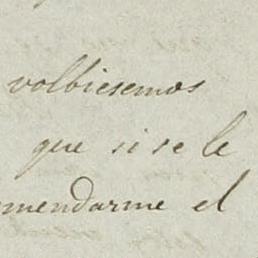 volbiesemos
que si se le
mendarme el